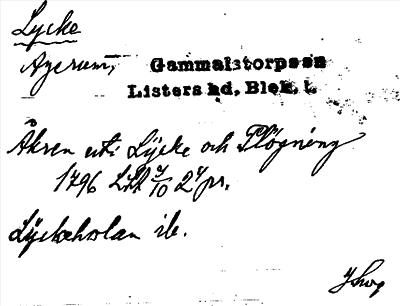 Lycke
Agerum,
Gammalstorps sn
Listers hd, Blek. l.
Åkren uti Lÿcke och Plögning
1796 Lskt 7/10 24 pr.
Lÿckeholan ib.